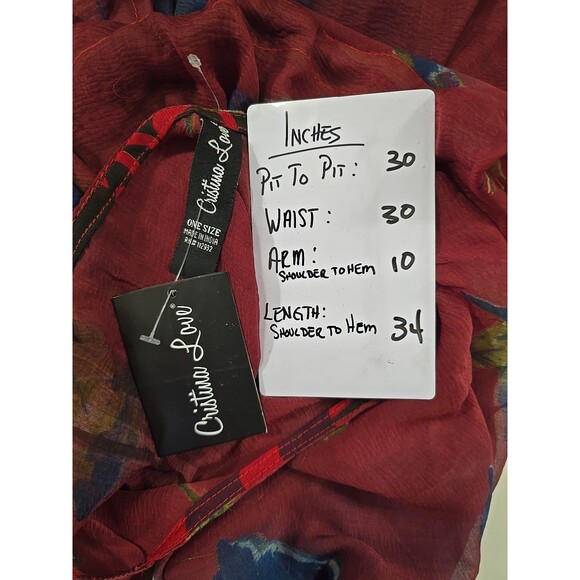 Cristina Love
ONE SIZE
MADE IN INDIA
RN# 112932
Cristina Love
INCHES
PIT TO PIT: 30
WAIST: 30
ARM: 10
SHOULDER TO HEM
LENGTH: 34
SHOULDER TO HEM